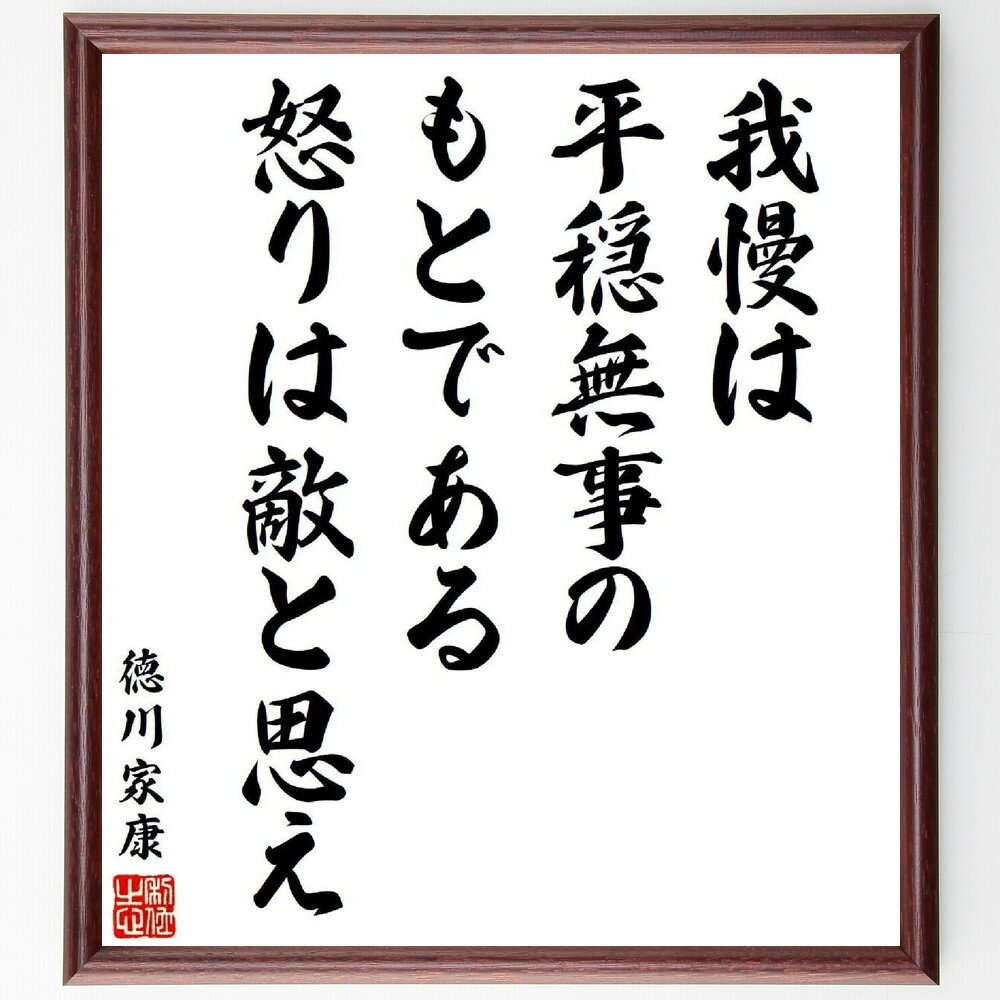 我慢は
平穏無事の
もとである
怒りは敵と思え
徳川家康